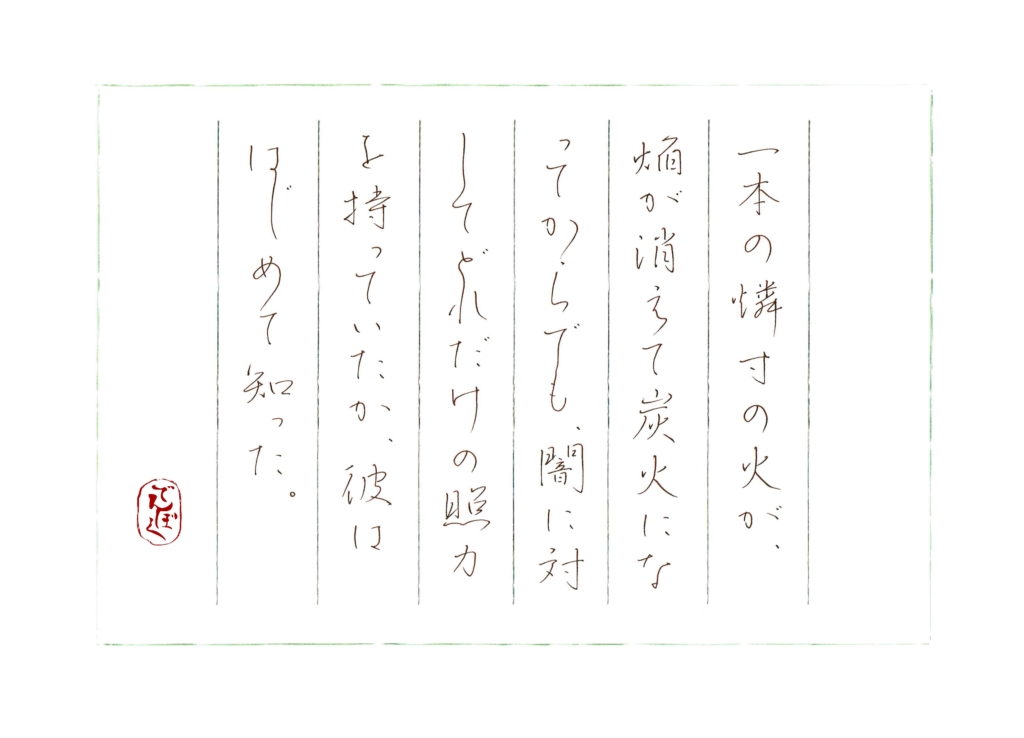 一本の燐寸の火が、
焔が消えて炭火にな
ってからでも、闇に対
してどれだけの照力
を持っていたか、彼は
はじめて知った。